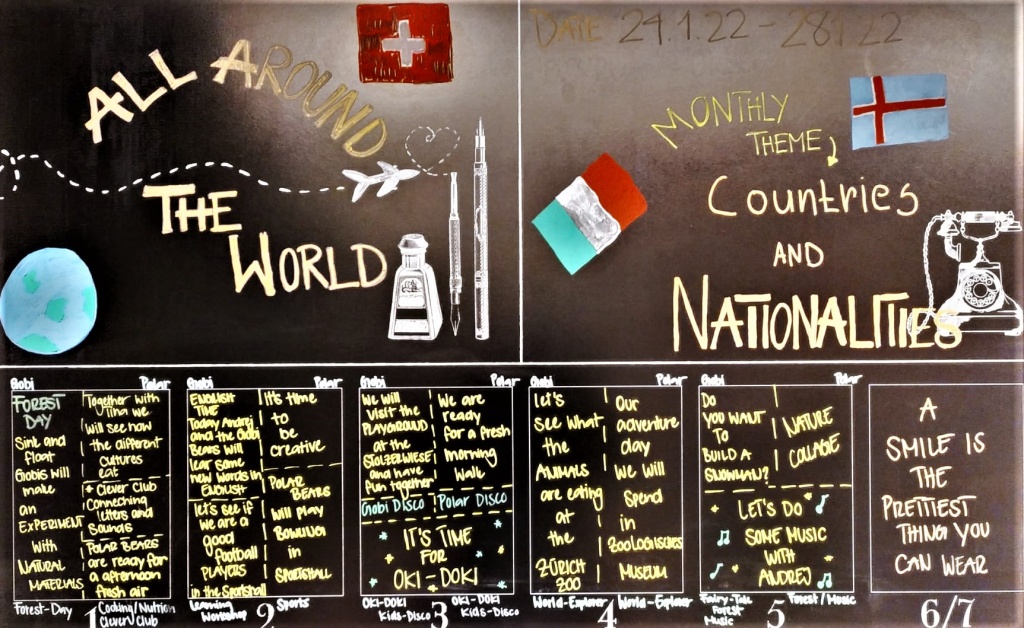 ALL AROUND
THE
WORLD
DATE 24.1.22 - 28.1.22
MONTHLY
THEME
Countries
AND
NATIONALITIES
Gobi
Polar
FOREST
DAY
Sink and
float
Gobis will
make
an
EXPERIMENT
With
NATURAL
MATERIALS
Together with
Tina we
will see how
the different
cultures
eat
+ Clever Club
Connecting
letters and
Sounds
POLAR BEARS
are ready for
a afternoon
fresh air
Forest-Day
1
Cooking/Nutrition
Clever Club
Gobi
Polar
ENGLISH
TIME
Today Andrej
and the Gobi
Bears will
lear some
new words in
ENGLISH
let's see if
we are a
good
football
PLAYERS
in the Sportshall
It's time
to
be
creative
POLAR
BEARS
will play
BOWLING
in
SPORTSHALL
Learning
Workshop
2
Sports
Gobi
Polar
We will
visit the
PLAYGROUND
at the
STOLZEWIESE
and have
fun together
We are
ready
for a fresh
morning
walk
Gobi Disco
Polar Disco
IT'S TIME
FOR
OKI-DOKI
OKI-DOKI
Kids-Disco
3
OKI-DOKI
Kids-Disco
Gobi
Polar
let's
see what
the
ANIMALS
are eating
at
the
ZÜRICH
ZOO
Our
adventure
day
We will
Spend
in
ZOOLOGISCHES
MUSEUM
World-Explorer
4
World-Explorer
Gobi
Polar
Do
YOU WANT
TO
BUILD A
SNOWMAN?
NATURE
COLLAGE
LET'S DO
SOME MUSIC
WITH
ANDREJ
Fairy-Tale
Forest
Music
5
Forest/Music
A
SMILE IS
THE
PRETTIEST
THING YOU
CAN WEAR
6/7